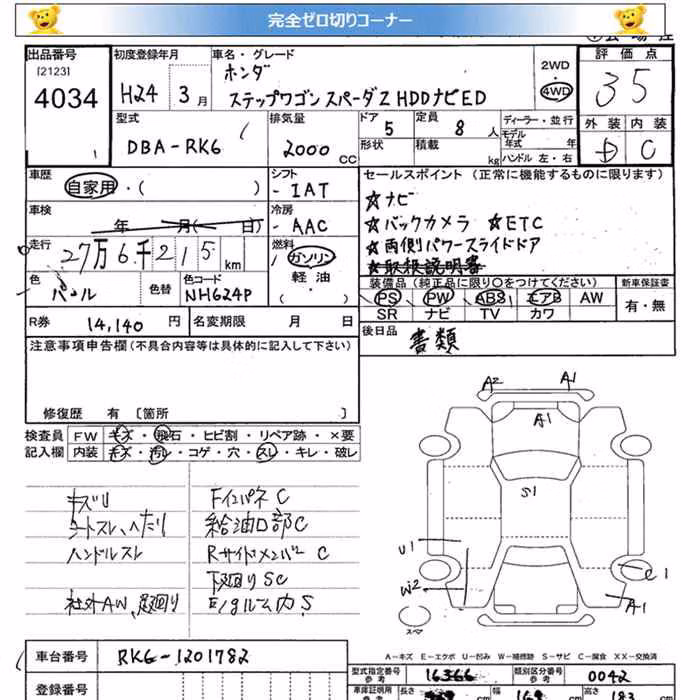 完全ゼロ切りコーナー
出品番号
(2123)
4034
初度登録年月
H24 3月
車名・グレード
ホンダ
ステップワゴン スパーダZ HDDナビED
2WD
4WD
評価点
35
外装 内装
D C
型式
DBA-RK6
排気量
2000 CC
ドア
5
定員
8 人
形状
積載
kg
ディーラー・並行
モデル
年式 年
ハンドル 左・右
車歴
自家用・( )
シフト
IAT
セールスポイント (正常に機能するものに限ります)
☆ナビ
☆バックカメラ ☆ETC
☆両側パワースライドドア
☆取扱説明書
車検
年 月( 日)
冷房
AAC
走行
27万6千215 km
燃料
ガソリン
軽油
( )
色
パール
色替
色コード
NH624P
装備品 (純正品に限り○をつけてください)
PS PW ABS エアB AW
SR ナビ TV カワ
新車保証書
有・無
R券 14,140 円
名変期限 月 日
後日品
書類
注意事項申告欄(不具合内容等は具体的に記入して下さい)
修復歴 有 〔箇所 〕
検査員
記入欄
FW キズ・飛石・ヒビ割・リペア跡・×要
内装 キズ・汚レ・コゲ・穴・スレ・キレ・破レ
キズリ
シートスレ、ヘタリ
ハンドルスレ
社外AW、足廻り
FインパネC
給油口部C
Rサイドメンバー C
下廻りSC
E/gルーム内S
A2
A1
A1
S1
U1
W2
C1
A1
スペア
A-キズ E-エクボ U-凹み W-補修跡 S-サビ C-腐食 XX-交換済
車台番号
RK6-1201782
登録番号
型式指定番号
参考
16366
類別区分番号
参考
0042
車庫証明用
参考
長さ
cm
幅
169
cm
高さ
183
cm